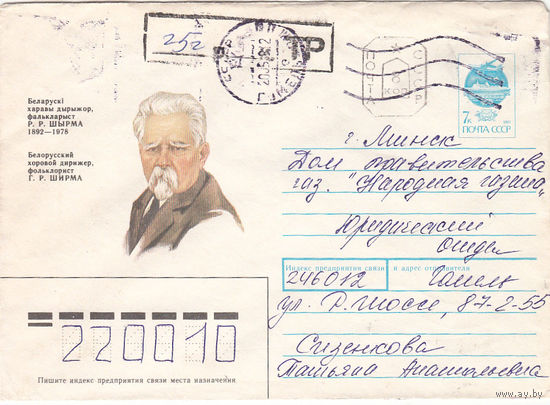 25г
Р
ПОЧТА
СССР
6
коп
7к
ПОЧТА СССР
Беларускі
харавы дырыжор,
фалькларыст
Р. Р. ШЫРМА
1892—1978
Белорусский
хоровой дирижер,
фольклорист
Г. Р. ШИРМА
г. Минск
Дом правительства
газ. "Народная газета"
Юридический
отдел
Индекс предприятия связи и адрес отправителя
246012 Гомель
ул. Р. Шоссе, 87-2-55
Сизенкова
Татьяна Анатольевна
220010
Пишите индекс предприятия связи места назначения
www.ay.by